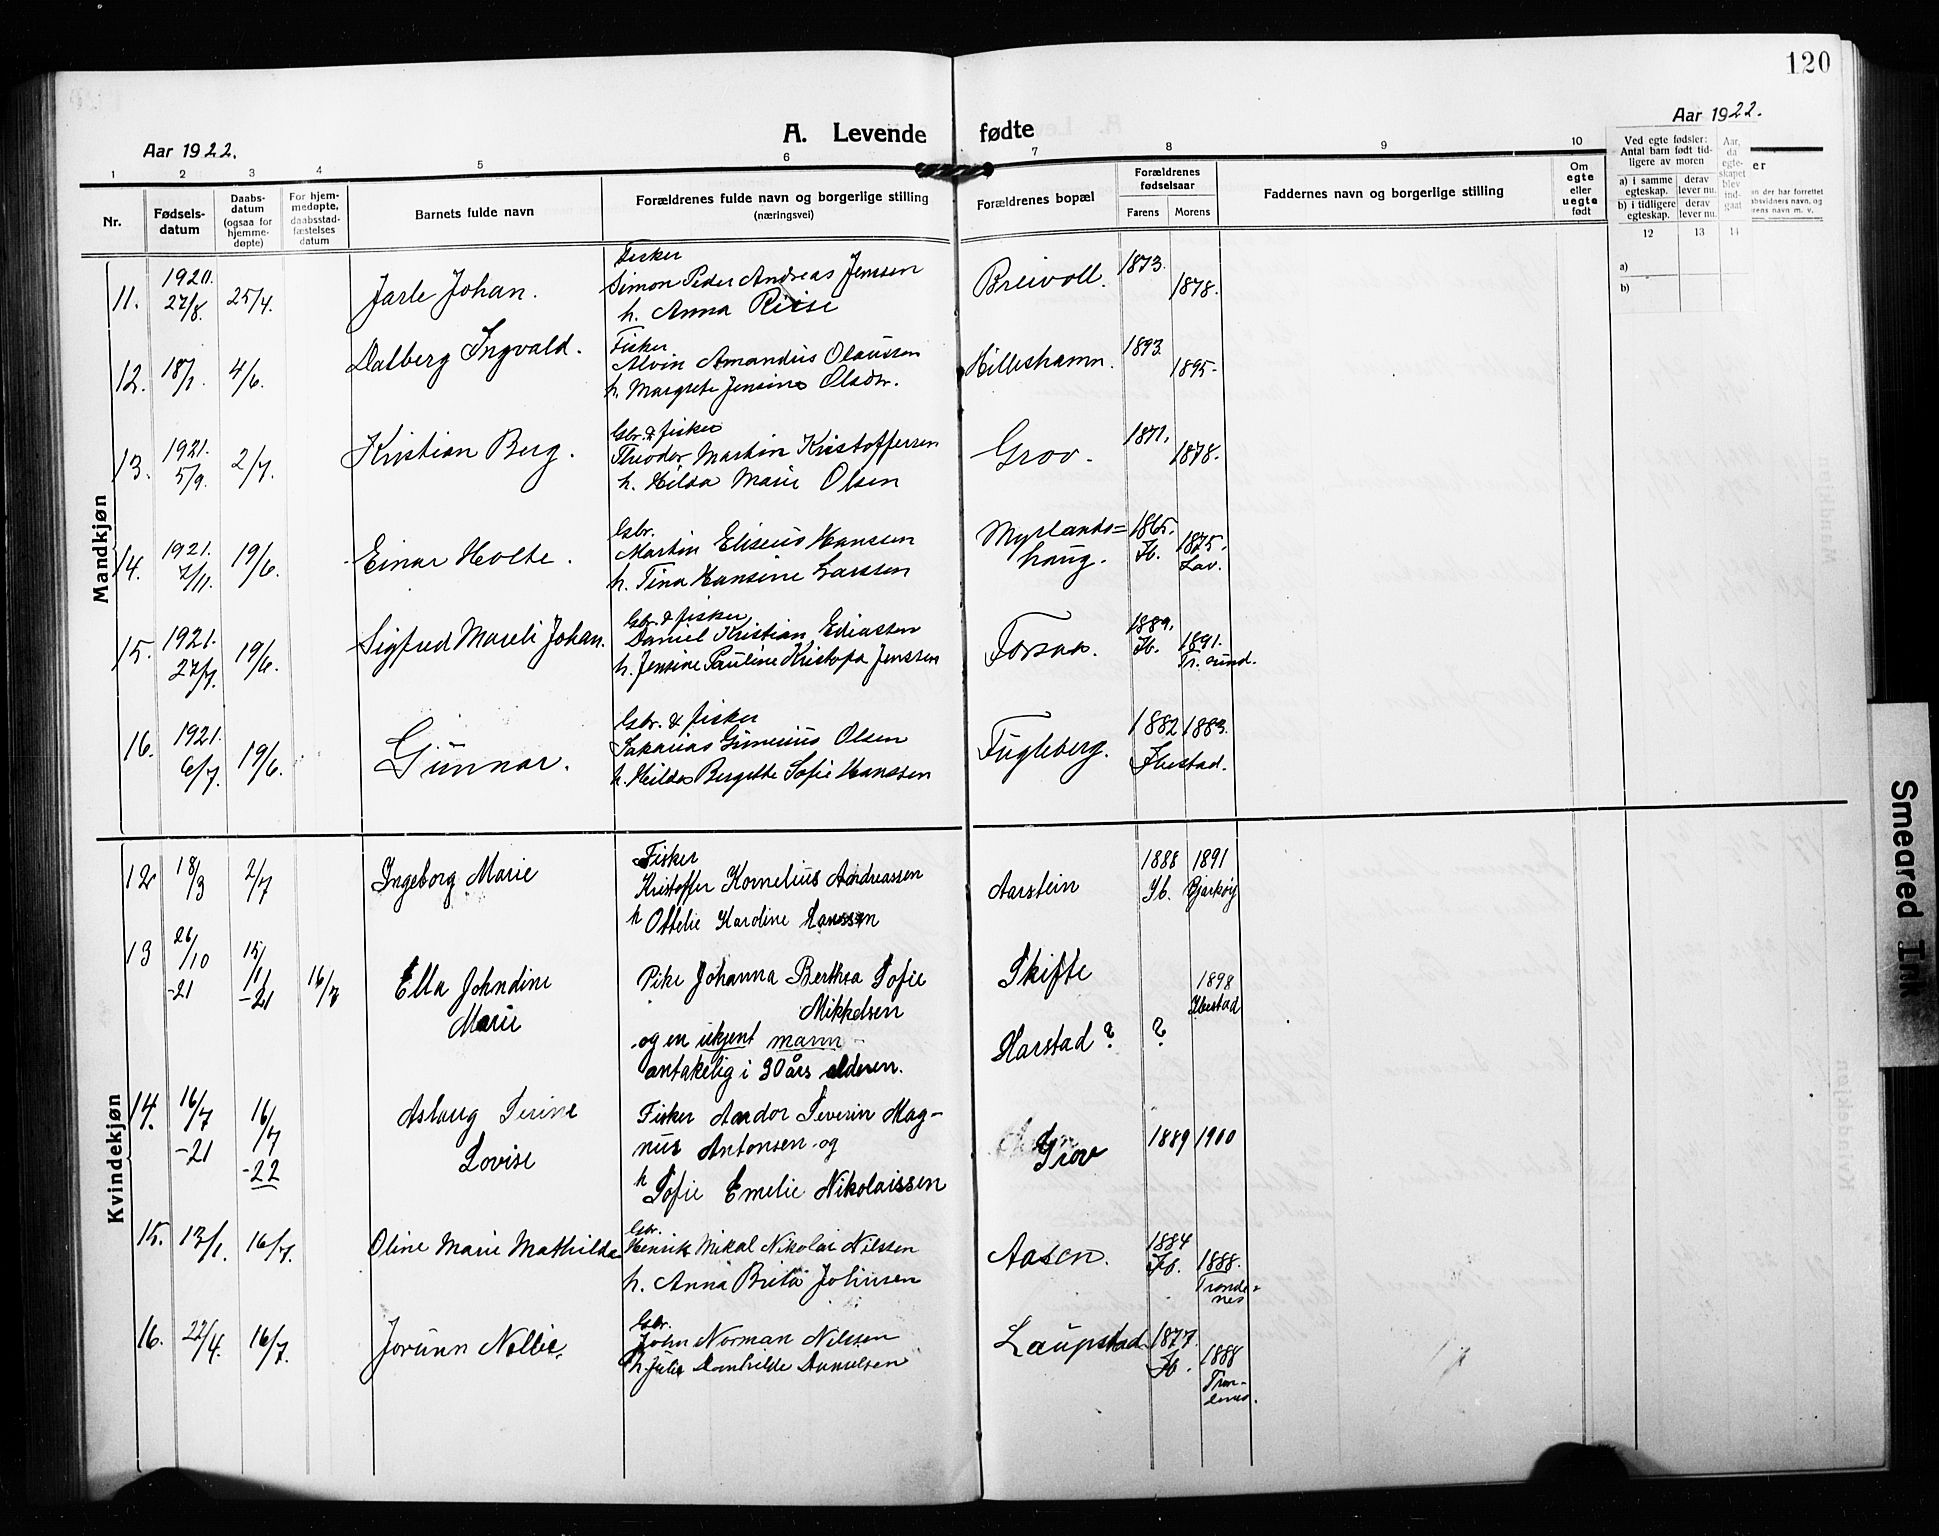 120
A. Levende fødte
Aar 1922.
Aar 1922.
1 2 3 4 5 6 7 8 9 10
Nr.
Fødsels-
datum
Daabs-
datum
(ogsaa for
hjemme-
døpte)
For hjem-
medøpte,
daabsstad-
fæstelses
datum
Barnets fulde navn
Forældrenes fulde navn og borgerlige stilling
(næringsvei)
Forældrenes bopæl
Forældrenes
fødselsaar
Farens Morens
Faddernes navn og borgerlige stilling
Om
egte
eller
uegte
født
Ved egte fødsler:
Antal barn født tid-
ligere av moren
a) i samme
egteskap.
derav
lever nu.
b) i tidligere
egteskap.
derav
lever nu.
Aar,
da
egte-
skapet
blev
ind-
gaat
er
12 13 14
a)
b)
Mandkjøn
11. 27/8. 25/4. Jarle Johan.
Fisker
Simon Peder Andreas Jenssen
h. Anna Riise
Breivoll. 1873. 1878.
12. 18/1. 4/6. Dalberg Ingvald.
Fisker
Alvin Amandus Olaussen
h. Margrete Jensine Olsdtr.
Hilleshamn. 1893. 1895.
13. 1921. 5/9. 2/7. Kristian Berg.
Gbr. & fisker
Theodor Martin Kristoffersen
h. Hilda Marie Olsen
Grov. 1871. 1878.
14. 1921. 7/11. 19/6. Einar Holte.
Gbr.
Martin Eliseus Hanssen
h. Tina Hansine Larssen
Myrlands=
haug.
1865. Ib. 1875. Lav.
15. 1921. 27/7. 19/6. Sigfred Mareli Johan.
Gbr. & fisker
Daniel Kristian Ediassen
h. Jensine Pauline Kristofa Jenssen
Forsaa. 1889. Ib. 1891. Tr.sund.
16. 1921. 6/7. 19/6. Gunnar.
Gbr. & fisker
Sakarias Gimenius Olsen
h. Hilda Bergitte Sofie Hanssen
Fugleberg. 1882 1883.
Ibestad.
Kvindekjøn
12 18/3 2/7 Ingeborg Marie
Fisker
Kristoffer Kornelius Andreassen
h Ottelie Kardine Hanssen
Aarstein 1888 Ib. 1891 Bjarkøy
13 26/10 -21 15/11 -21 16/7 Ella Johndine
Marie
Pike Johanna Berthea Sofie
Mikkelsen
og en ukjent mann
antakelig i 30 års alderen.
Skifte 1898 Ibestad
Harstad? ?
14. 16/7 -21 16/7 -22 Aslaug Serine
Lovise
Fisker Andor Severin Mag-
nus Antonsen og
h Sofie Emelie Nikolaissen
Grov 1889 1900
15. 13/1. 16/7. Oline Marie Mathilde
Gbr.
Henrik Mikal Nikolai Nilssen
h. Anna Brita Johnsen
Aasen. 1884 Ib. 1888. Tronde-
nes
16. 22/4. 16/7. Jorunn Nellie.
Gbr.
John Norman Nilssen
h. Julie Domhilde Danielsen
Laupstad 1877. Ib. 1888 Tron-
denes.
Smeared Ink